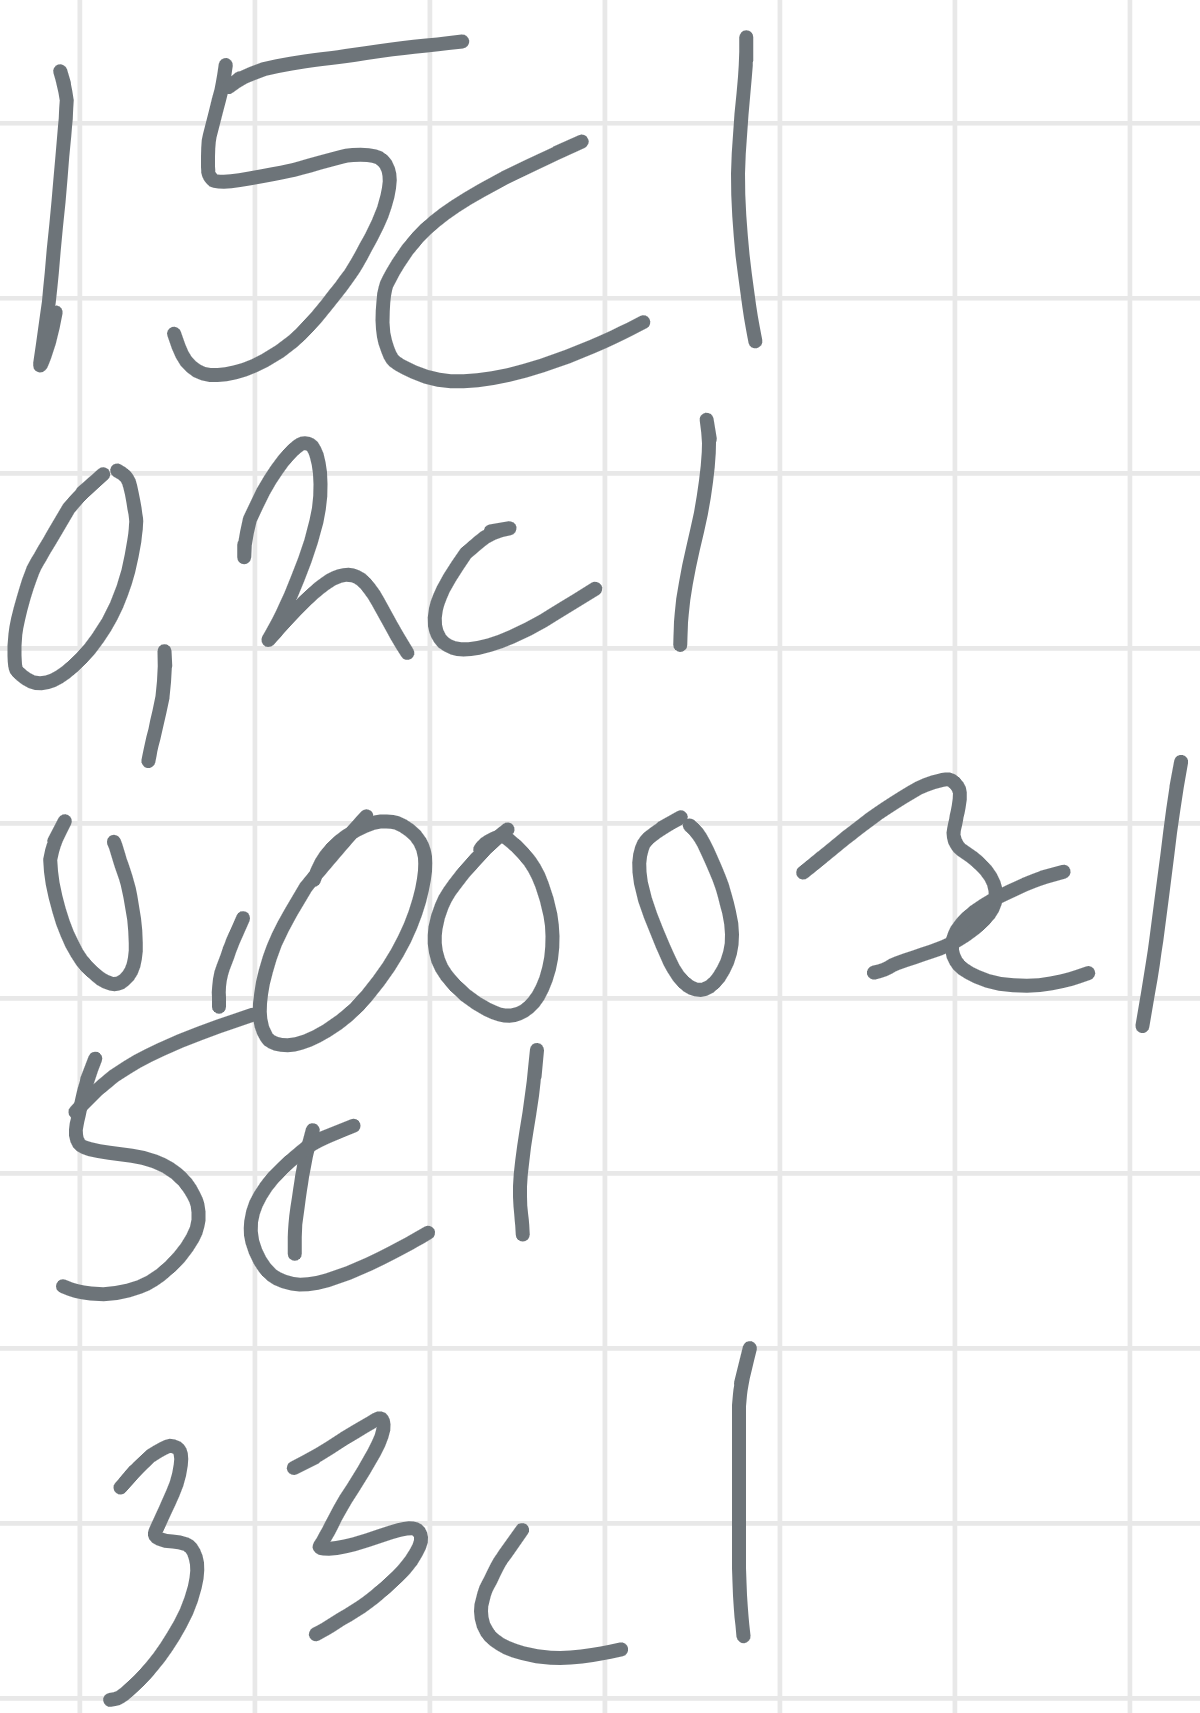 15cl
0,2cl
0,0003cl
5cl
33cl